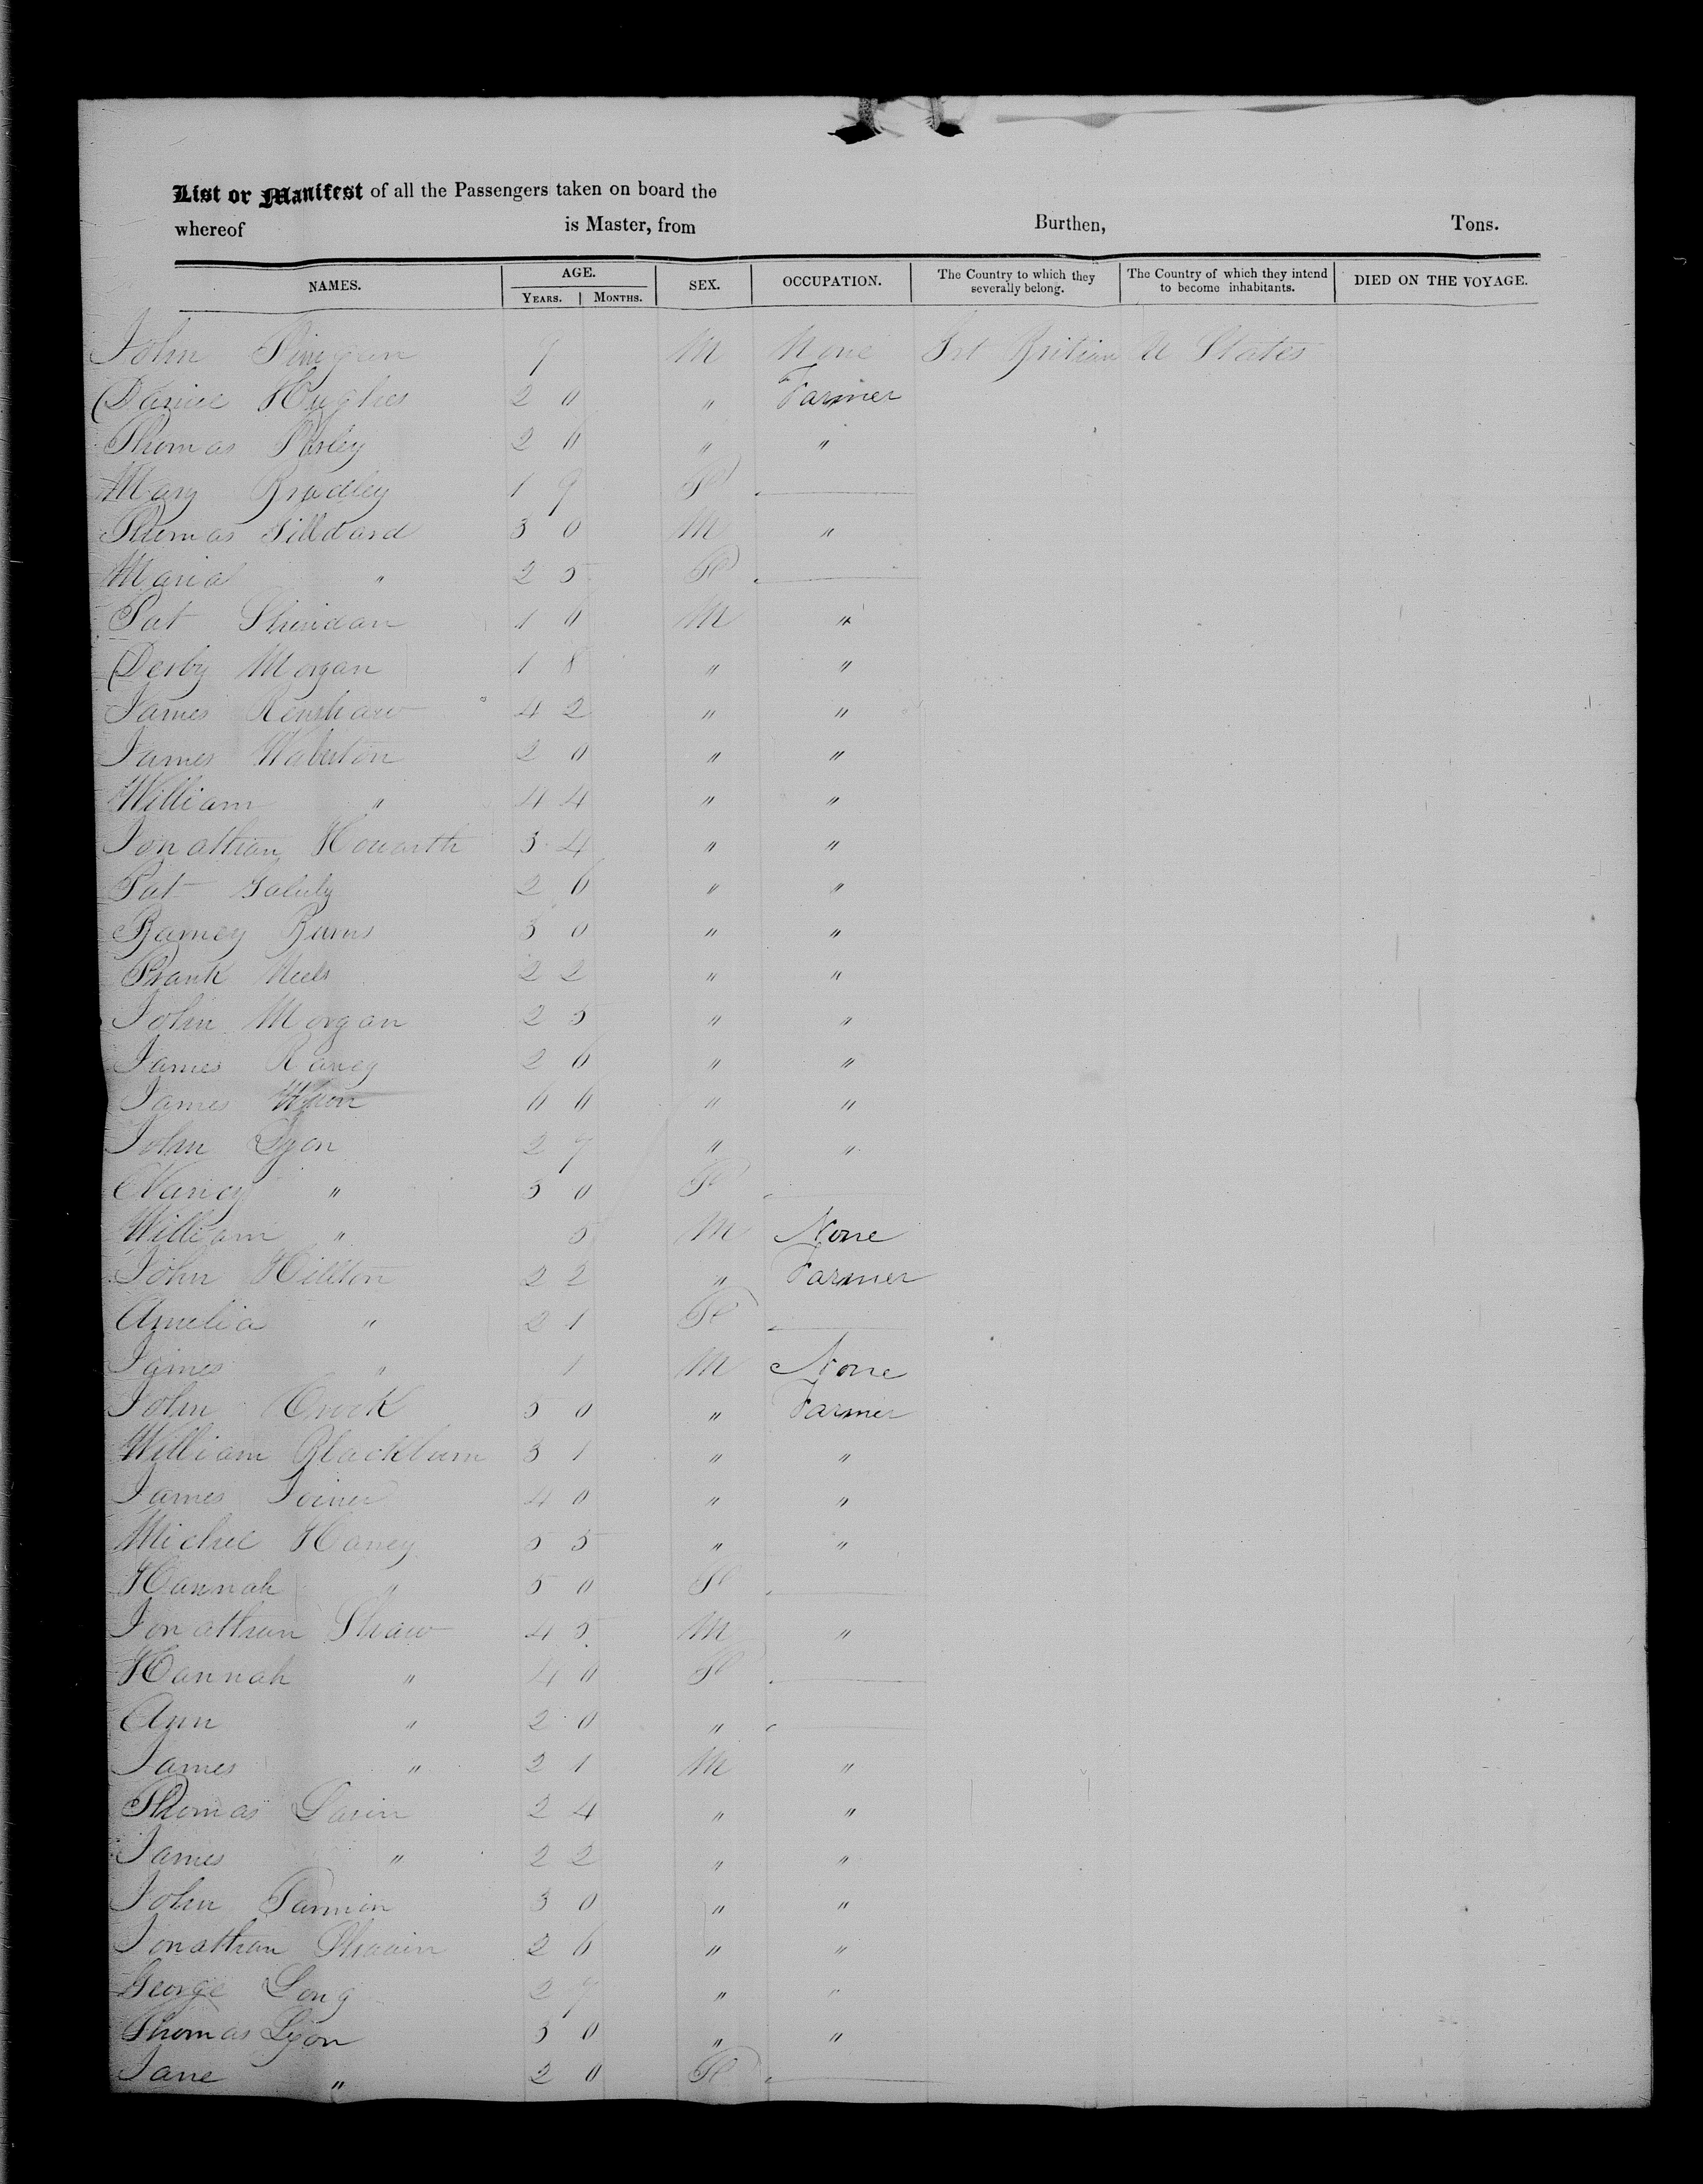 List or Manifest of all the Passengers taken on board the
whereof is Master, from Burthen, Tons.
NAMES. AGE. YEARS. MONTHS. SEX. OCCUPATION. The Country to which they severally belong. The Country of which they intend to become inhabitants. DIED ON THE VOYAGE.
John 9 M None Grt Britian U States
Daniel Hughes 20 " Farmer
Thomas 26 " "
Mary Bradley 19 Fe
Thomas Gilldard 30 M "
Maria " 25 Fe
Pat Sheridan 10 M "
Derby Morgan 18 " "
James Renshaw 42 " "
James Waberton 20 " "
William " 44 " "
Jonathian Howarth 34 " "
Pat 26 " "
Barney Burns 30 " "
Frank 22 " "
John Morgan 25 " "
James Raney 26 " "
James " "
John Lyon 27 " "
Nancy " 30 Fe
William " 5 M None
John Hillton 22 " Farmer
Amelia " 21 Fe
James " 1 M None
John Crook 50 " Farmer
William Blackburn 31 " "
James Joiner 40 " "
Michel Haney 55 " "
Hannah " 50 Fe
Jonathan Shaw 45 M "
Hannah " 40 Fe
Ann " 20 "
James " 21 M "
Thomas 24 " "
James " 22 " "
John 30 " "
Jonathan 26 " "
George Long 27 " "
Thomas Lyon 30 " "
Jane " 20 Fe